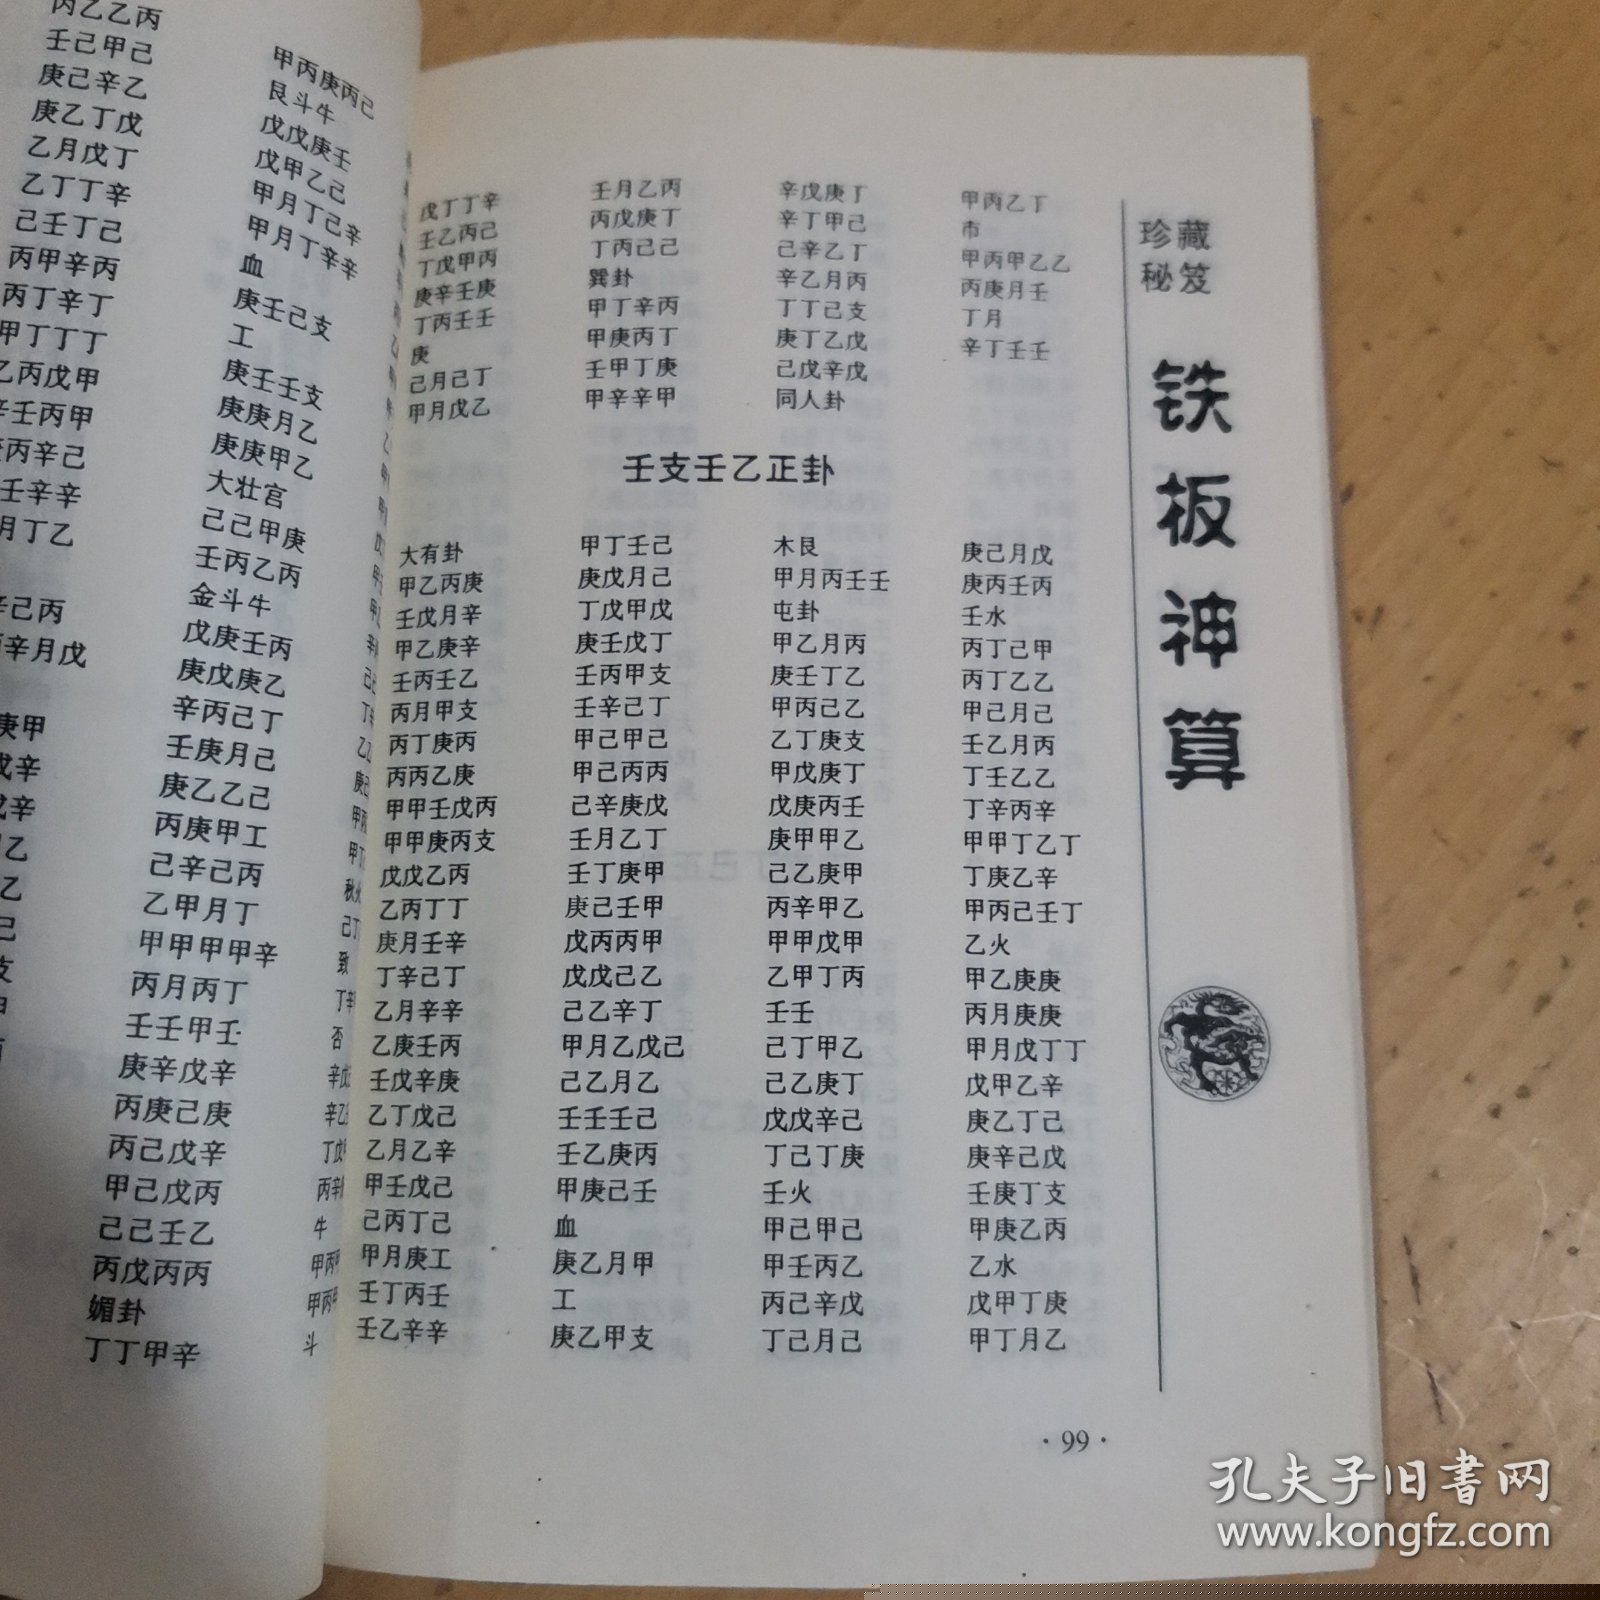 丙乙乙丙
壬己甲己
庚己辛乙
庚乙丁戊
乙月戊丁
乙丁丁辛
己壬丁己
丙甲辛丙
丙丁辛丁
甲丁丁丁
乙丙戊甲
辛壬丙甲
丙辛己
壬辛辛
月丁乙
辛己丙
辛月戊
庚甲
戊辛
戊辛
乙
乙
己
支
甲丙庚丙己
艮斗牛
戊戊庚壬
戊甲乙己
甲月丁己辛
甲月丁辛辛
血
庚壬己支
工
庚壬壬支
庚庚月乙
庚庚甲乙
大壮宫
己己甲庚
壬丙乙丙
金斗牛
戊庚壬丙
庚戊庚乙
辛丙己丁
壬庚月己
庚乙乙己
丙庚甲工
己辛己丙
乙甲月丁
甲甲甲甲辛
丙月丙丁
壬壬甲壬
庚辛戊辛
丙庚己庚
丙己戊辛
甲己戊丙
己己壬乙
丙戊丙丙
媚卦
丁丁甲辛
否
牛
斗
戊丁丁辛
壬乙丙己
丁戊甲丙
庚辛壬庚
丁丙壬壬
庚
己月己丁
甲月戊乙
壬月乙丙
丙戊庚丁
丁丙己己
巽卦
甲丁辛丙
甲庚丙丁
壬甲丁庚
甲辛辛甲
辛戊庚丁
辛丁甲己
己辛乙丁
辛乙月丙
丁丁己支
庚丁乙戊
己戊辛戊
同人卦
甲丙乙丁
市
甲丙甲乙乙
丙庚月壬
丁月
辛丁壬壬
壬支壬乙正卦
大有卦
甲乙丙庚
壬戊月辛
甲乙庚辛
壬丙壬乙
丙月甲支
丙丁庚丙
丙丙乙庚
甲甲壬戊丙
甲甲庚丙支
戊戊乙丙
乙丙丁丁
庚月壬辛
丁辛己丁
乙月辛辛
乙庚壬丙
壬戊辛庚
乙丁戊己
乙月乙辛
甲壬戊己
己丙丁己
甲月庚工
壬丁丙壬
壬乙辛辛
甲丁壬己
庚戊月己
丁戊甲戊
庚壬戊丁
壬丙甲支
壬辛己丁
甲己甲己
甲己丙丙
己辛庚戊
壬月乙丁
壬丁庚甲
庚己壬甲
戊丙丙甲
戊戊己乙
己乙辛丁
甲月乙戊己
己乙月乙
壬壬壬己
壬乙庚丙
甲庚己壬
血
庚乙月甲
工
庚乙甲支
木艮
甲月丙壬壬
屯卦
甲乙月丙
庚壬丁乙
甲丙己乙
乙丁庚支
甲戊庚丁
戊庚丙壬
庚甲甲乙
己乙庚甲
丙辛甲乙
甲甲戊甲
乙甲丁丙
壬壬
己丁甲乙
己乙庚丁
戊戊辛己
丁己丁庚
壬火
甲己甲己
甲壬丙乙
丙己辛戊
丁己月己
庚己月戊
庚丙壬丙
壬水
丙丁己甲
丙丁乙乙
甲己月己
壬乙月丙
丁壬乙乙
丁辛丙辛
甲甲丁乙丁
丁庚乙辛
甲丙己壬丁
乙火
甲乙庚庚
丙月庚庚
甲月戊丁丁
戊甲乙辛
庚乙丁己
庚辛己戊
壬庚丁支
甲庚乙丙
乙水
戊甲丁庚
甲丁月乙
珍藏
秘笈
铁板神算
·99·
孔夫子旧书网
www.kongfz.com